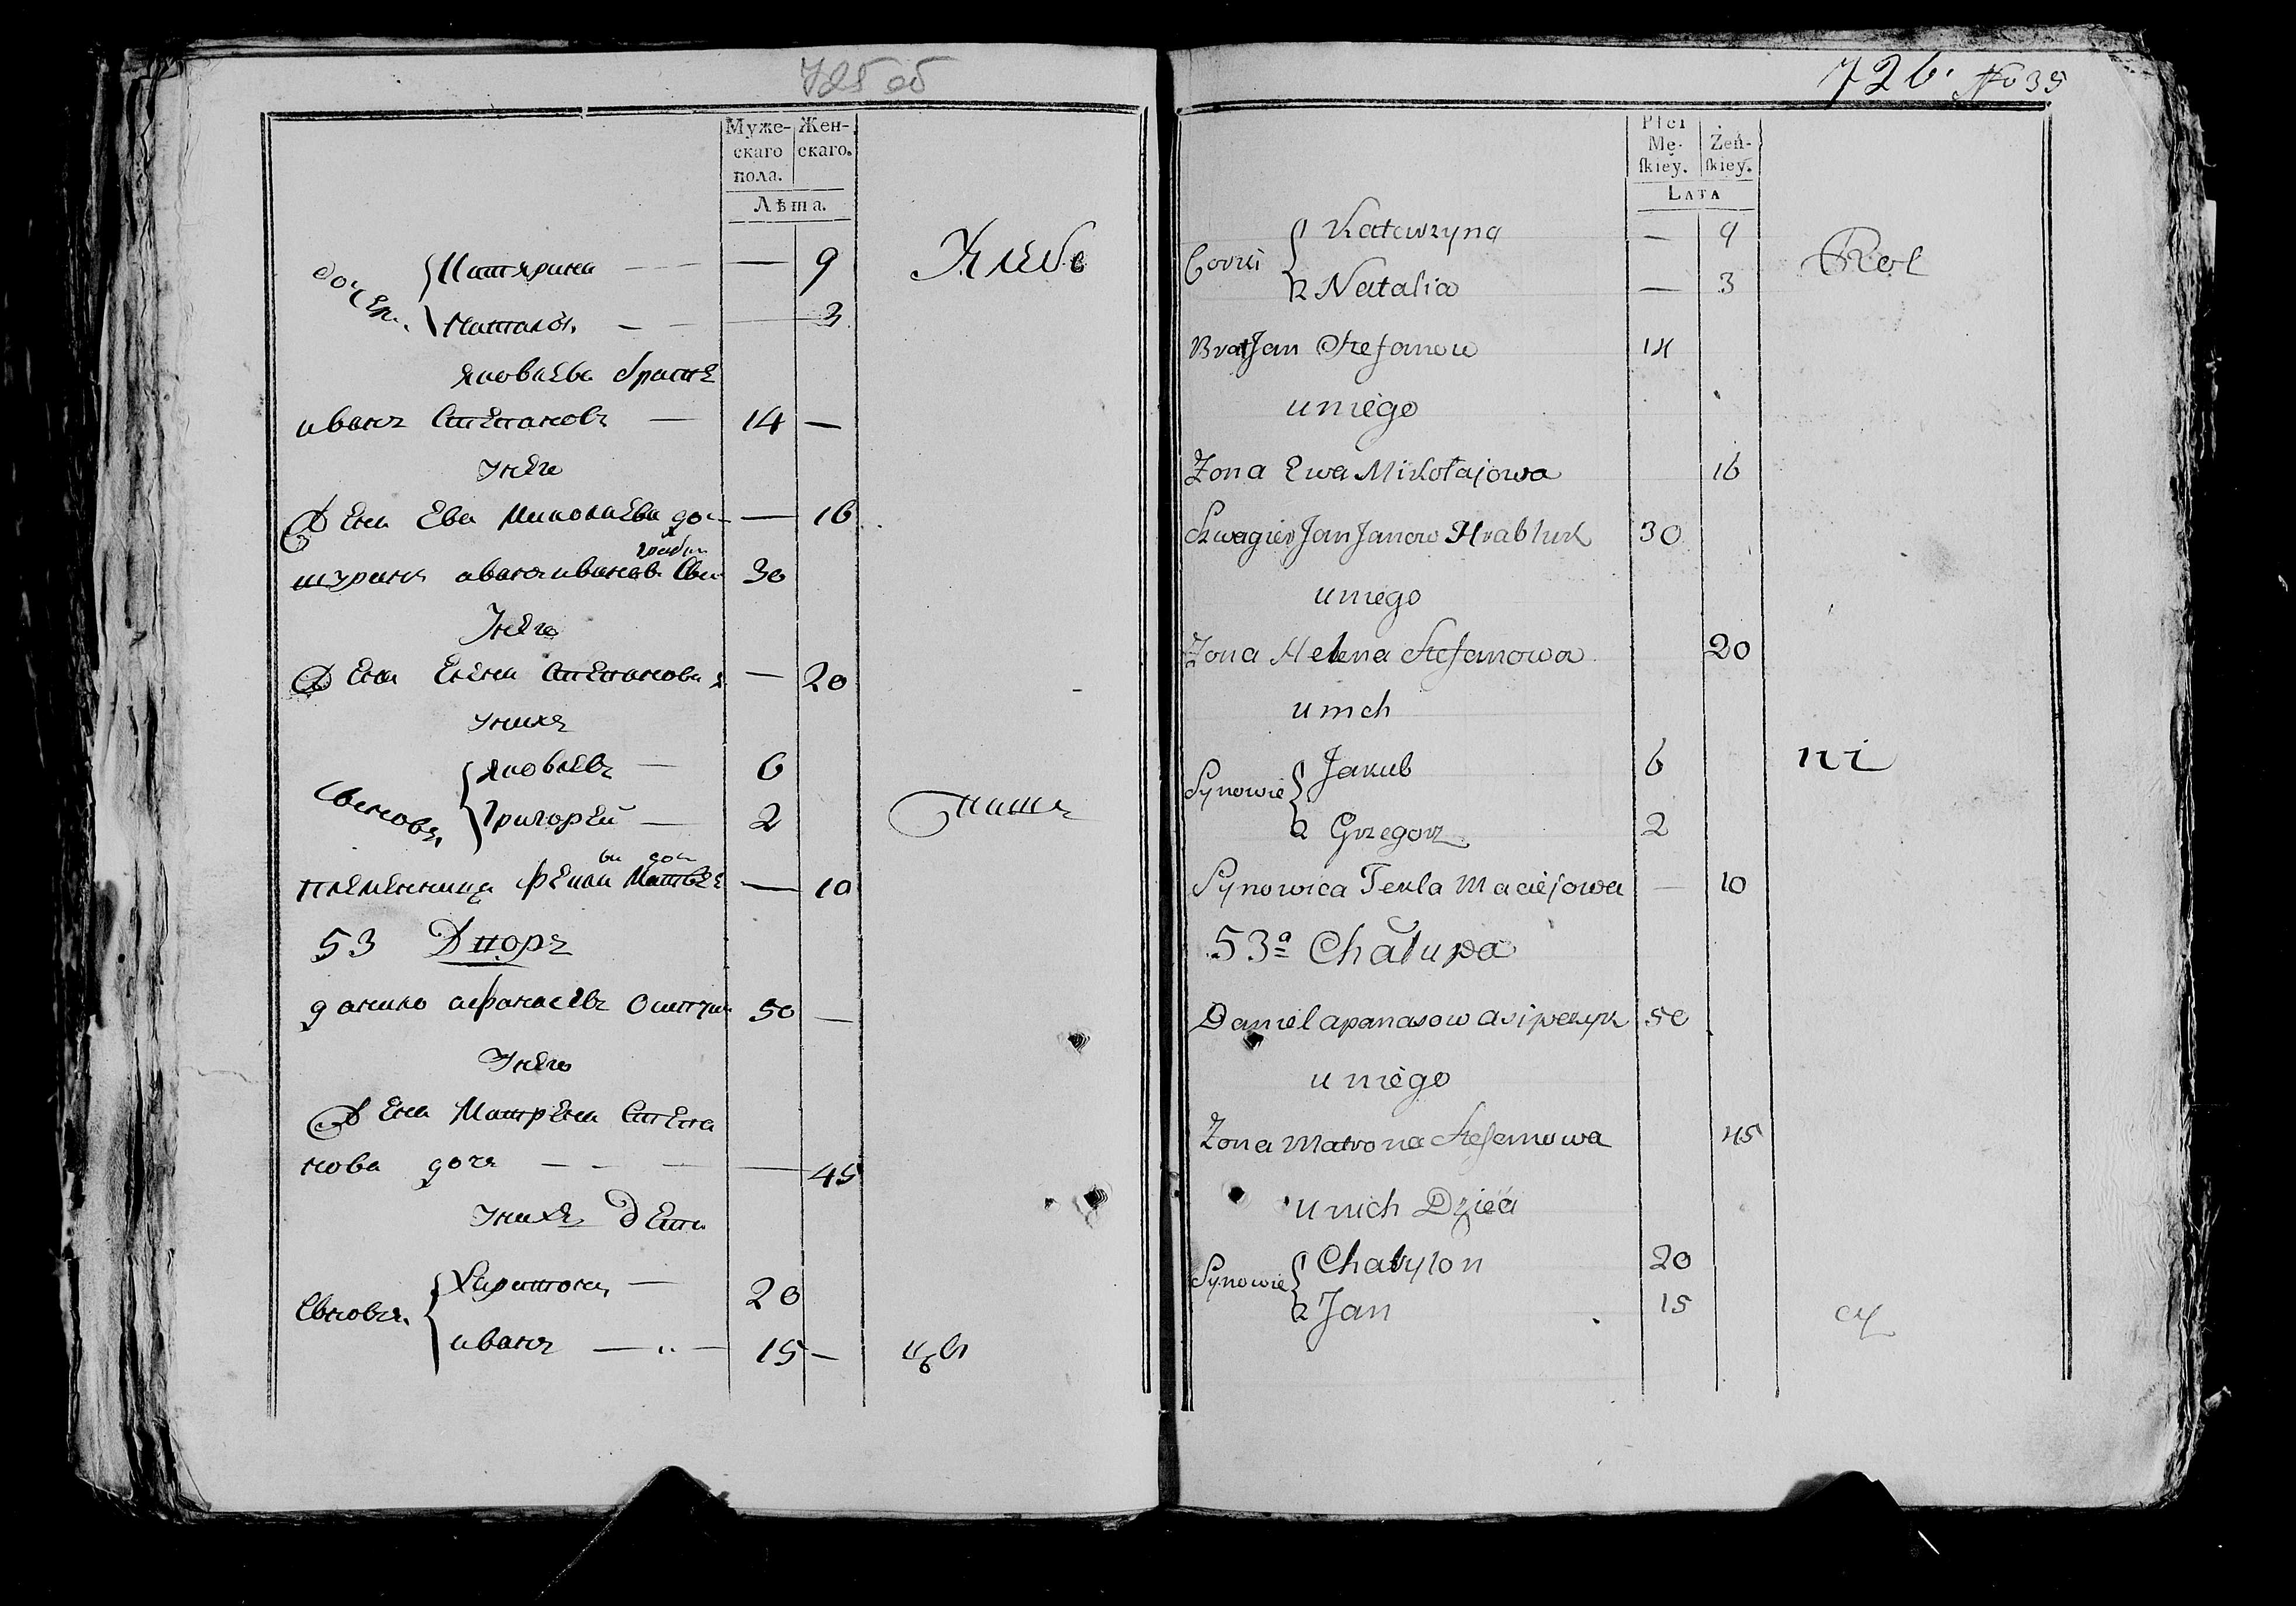 725 об
Муже- Жен-
скаго скаго.
пола.
Лѣта.
дочери Катярина — — 9
Хлебо
Наталья — — 3
Яковлева братъ
иванъ Степановъ — 14 —
У него
Жена Ева Миколаева доч — 16
шуринъ иванъ ивановъ 30
У него
Жена Елена Степанова д — 20
У нихъ
Сыновья Яковлевъ — 6
Григорей — 2
пашъ
ва доч
племенница Фекла Матвее — 10
53 Дворъ
данило афанасевъ Осипчук 50 —
У него
Жена Матрена Степа
нова дочь — — — — 45
У нихъ дети
Сыновья Харитонъ — 20
иванъ — 15 —
цы
726. No 35
Płci
Mę- Żeń-
ſkiey. ſkiey.
Lata
Corki Katarzyna — 9
Rol
2 Natalia — 3
Brat Jan Stefanow 14
u niego
Zona Ewa Mikołajowa 16
Szwagier Jan Janow Hrabluk 30
u niego
Zona Helena Stefanowa 20
u nich
Synowie Jakub 6
ni
2 Grzegorz 2
Synowica Tekla Maciejowa — 10
53a Chałupa
Daniel apanasow asipczyk 50
u niego
Zona Matrona Stefanowa 45
u nich Dzieci
Synowie Charyton 20
2 Jan 15
cy